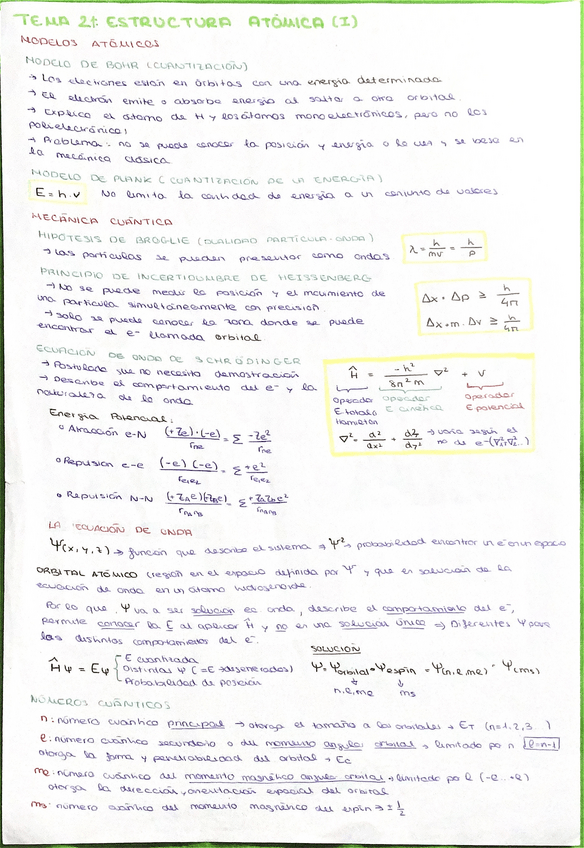 TEMA 21: ESTRUCTURA ATÓMICA (I)
MODELOS ATÓMICOS
MODELO DE BOHR (CUANTIZACIÓN)
→ Los electrones están en órbitas con una energía determinada
→ El electrón emite o absorbe energía al saltar a otra orbital.
→ Explica el átomo de H y los átomos monoelectrónicos, pero no los
polielectrónicos
→ Problema: no se puede conocer la posición y energía a la vez y se basa en
la mecánica clásica
MODELO DE PLANK (CUANTIZACIÓN DE LA ENERGÍA)
E = h·ν No limita la cantidad de energía a un conjunto de valores
MECÁNICA CUÁNTICA
HIPÓTESIS DE BROGLIE (DUALIDAD PARTÍCULA-ONDA)
→ Las partículas se pueden presentar como ondas
λ = h/mv = h/p
PRINCIPIO DE INCERTIDUMBRE DE HEISSENBERG
→ No se puede medir la posición y el movimiento de
una partícula simultáneamente con precisión.
→ Solo se puede conocer la zona donde se puede
encontrar el e⁻ llamada orbital
Δx · Δp ≥ h/4π
Δx · m · Δv ≥ h/4π
ECUACIÓN DE ONDA DE SCHRÖDINGER
→ Postulado que no necesita demostración
→ Describe el comportamiento del e⁻ y la
naturaleza de la onda
Ĥ = -h²/8π²m ∇² + V
Operador Operador Operador
E total o E cinética E potencial
Hamilton
∇² = d²/dx² + d²/dy² → varía según el
nº de e⁻
Energía Potencial:
• Atracción e-N (+Ze)·(-e)/rne = Σ -Ze²/rne
• Repulsión e-e (-e)(-e)/re1e2 = Σ +e²/re1e2
• Repulsión N-N (+ZAe)(ZBe)/rNANB = Σ +ZAZBe²/rNANB
LA ECUACIÓN DE ONDA
Ψ(x,y,z) → función que describe el sistema → Ψ² → probabilidad encontrar un e⁻ en un espacio
ORBITAL ATÓMICO (región en el espacio definida por Ψ y que es solución de la
ecuación de onda en un átomo hidrogenoide.
Por lo que, Ψ va a ser solución ec onda, describe el comportamiento del e⁻,
permite conocer la E al aplicar Ĥ y no es una solución única ⇒ Diferentes Ψ para
los distintos comportamientos del e⁻.
ĤΨ = EΨ
E cuantizada
Distintas Ψ (=E → degenerados)
Probabilidad de posición
SOLUCIÓN
Ψ = Ψorbital · Ψespín = Ψ(n,l,ml) · Ψ(ms)
n,l,ml ms
NÚMEROS CUÁNTICOS
n: número cuántico principal → otorga el tamaño a los orbitales → ET (n=1,2,3...)
l: número cuántico secundario o del momento angular orbital → limitado por n l=n-1
otorga la forma y penetrabilidad del orbital → Ec
ml: número cuántico del momento magnético angular orbital → limitado por l (-l...+l)
otorga la dirección y orientación espacial del orbital
ms: número cuántico del momento magnético del espín → ± 1/2